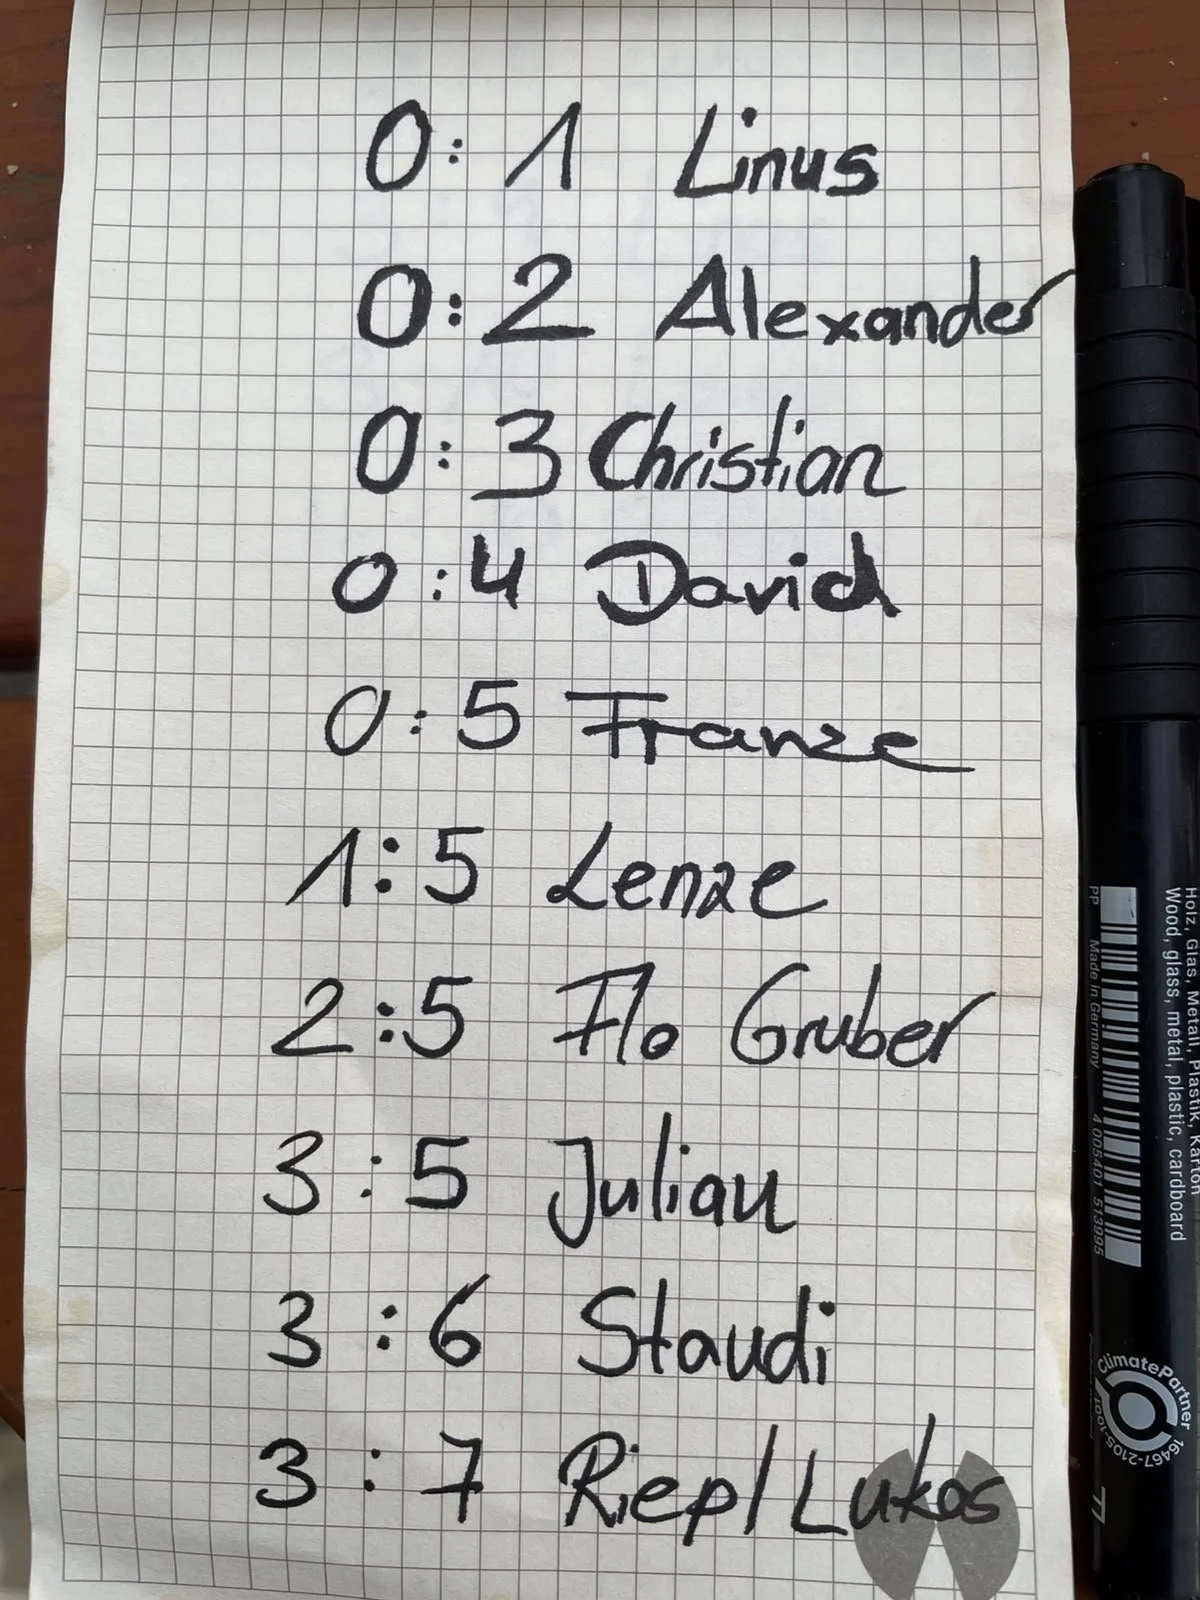 0: 1 Linus
0:2 Alexander
0: 3 Christian
0 :4 David
0:5 Franze
1:5 Lenze
2:5 Flo Gruber
3 :5 Julian
3 :6 Staudi
3 : 7 Riepl Lukas
Holz, Glas, Metall, Plastik, Karton
Wood, glass, metal, plastic, cardboard
PP Made in Germany 4 005401 513995
ClimatePartner
16467-2105-1001